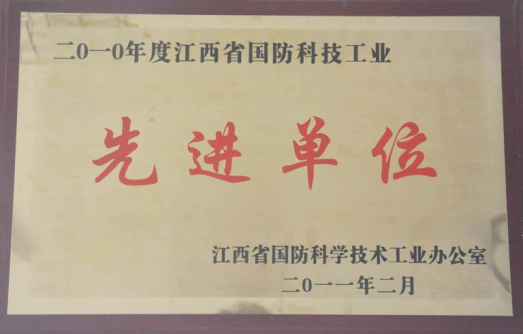 二0一0年度江西省国防科技工业
先进单位
江西省国防科学技术工业办公室
二0一一年二月